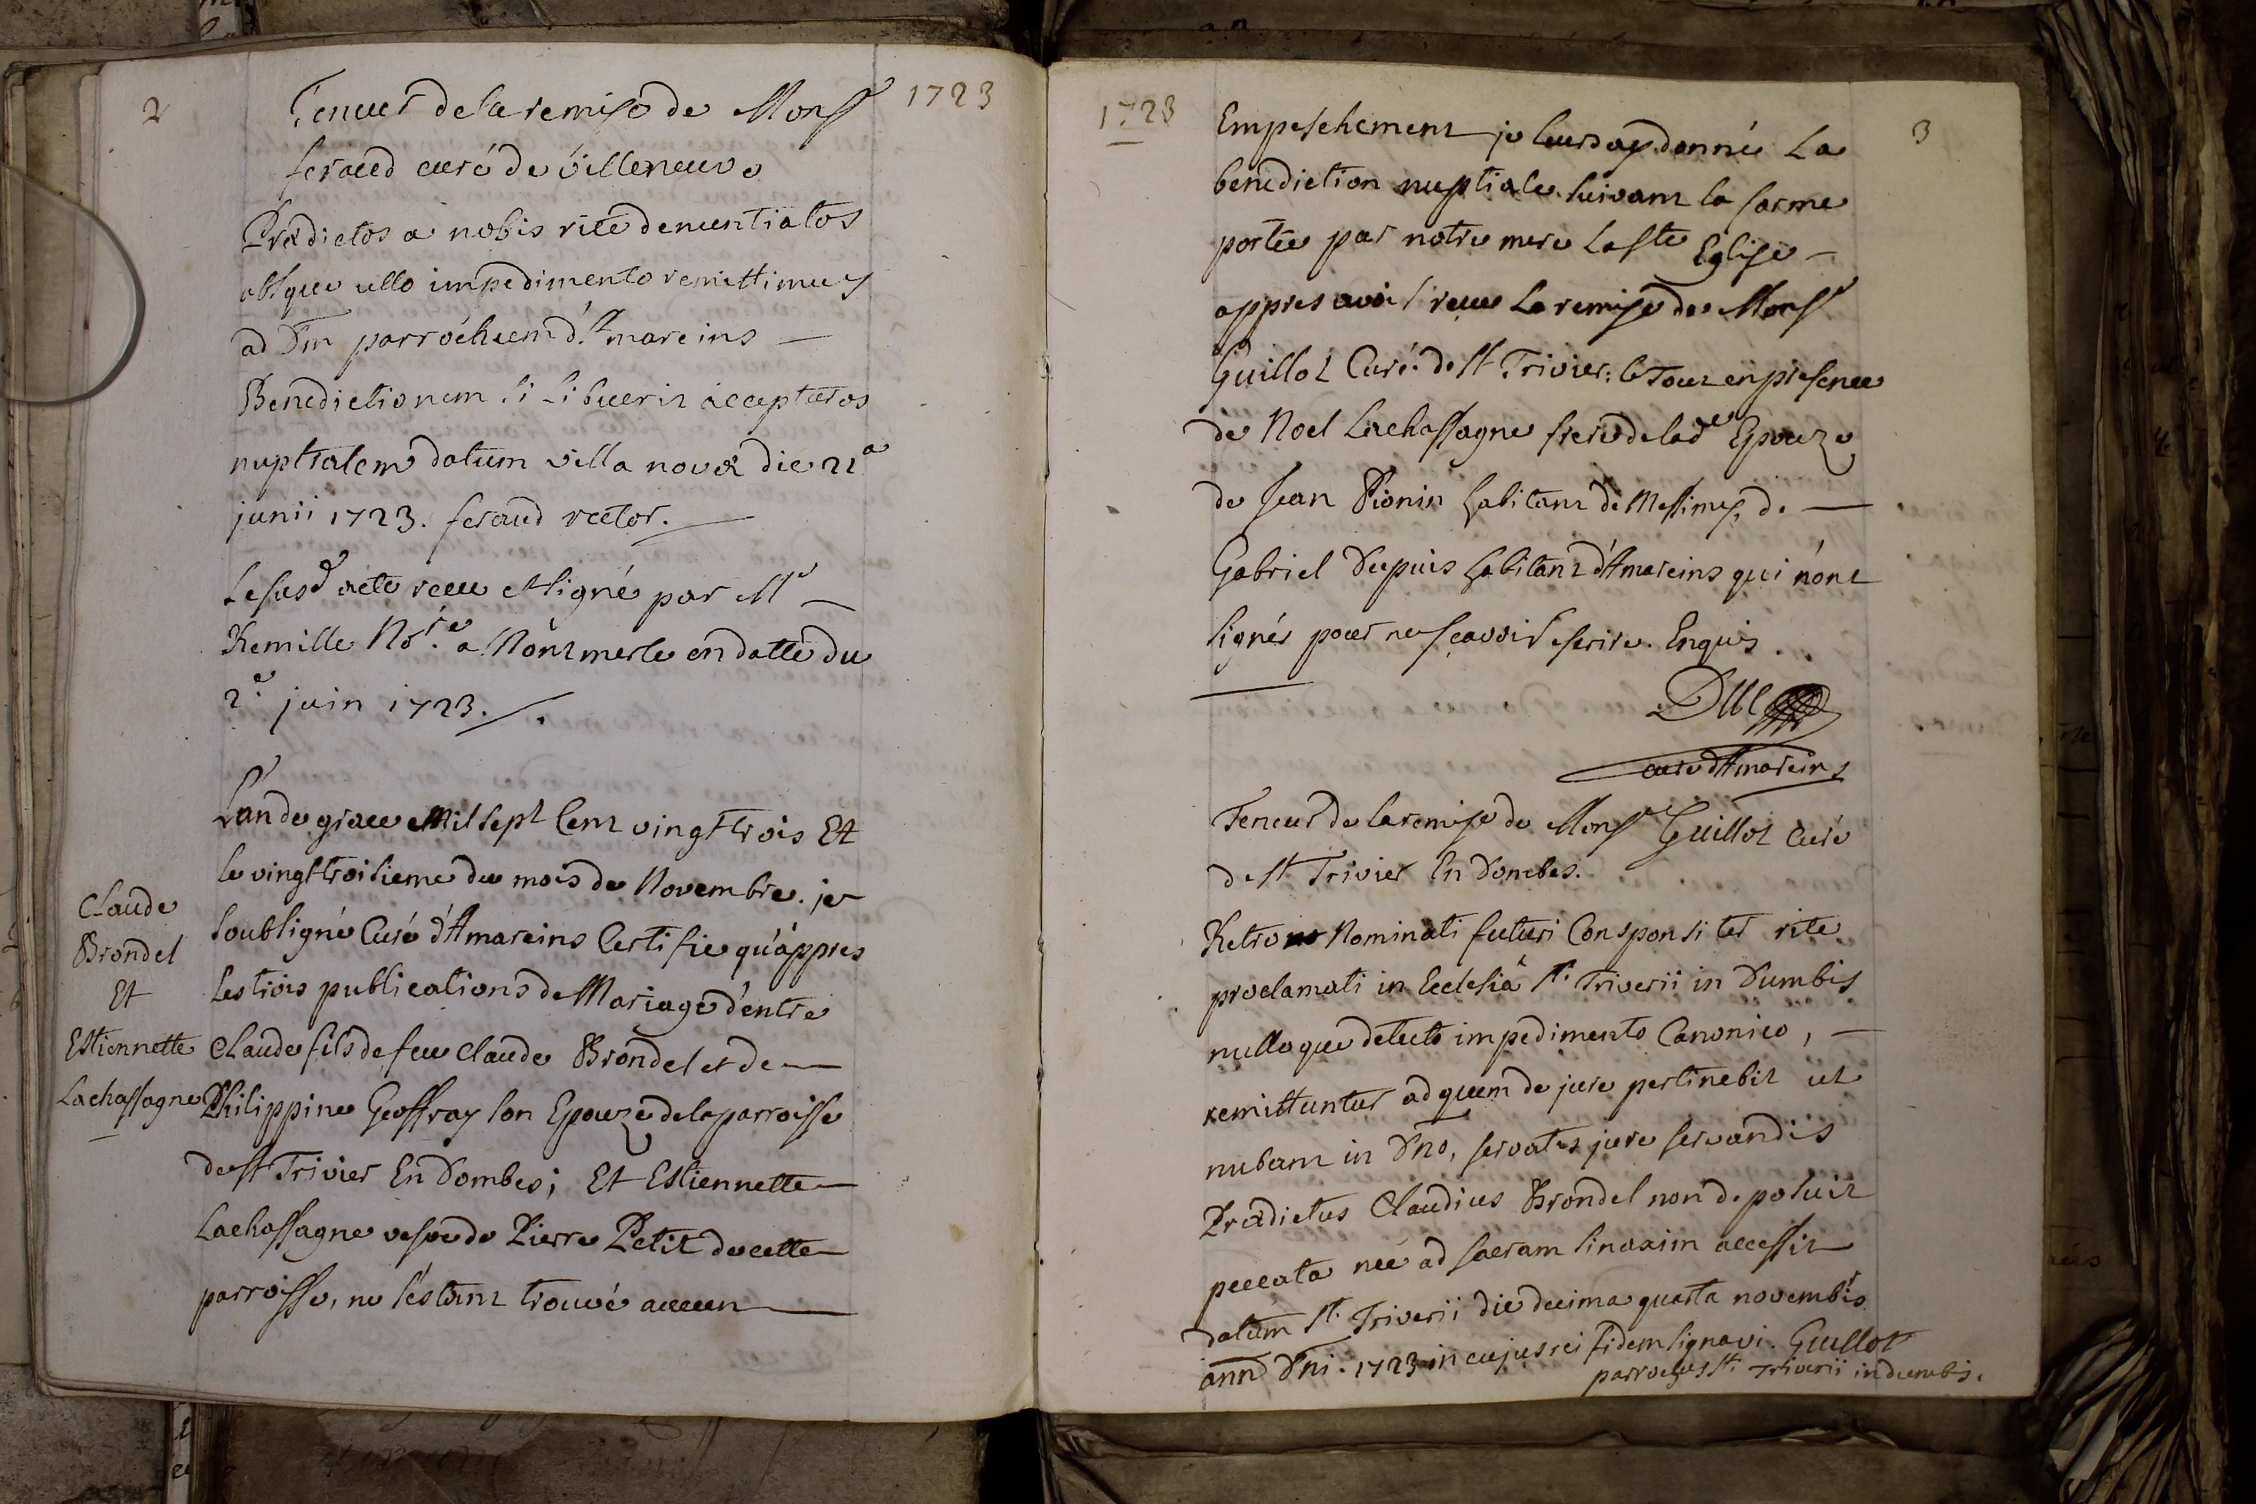 2
1723
Teneur de la remise de Monsr
feraud curé de villeneuve
Prædictos a nobis rite denuntiatos
absque ullo impedimento remittimus
ad Dm parrochum d'Amareins
Benedictionem si libuerit accepturos
nuptialem datum villa nova die 21a
junii 1723. feraud rector.
Le susd acte receu et signé par Me
Remille Nore a Montmerle en datte du
2e juin 1723.
L'an de grace Mil sept Cent vingt trois Et
le vingt troisieme du mois de Novembre. je
soubsigné Curé d'Amareins Certifie qu'appres
les trois publications de Mariage d'entre
Claude fils de feu Claude Brondel et de
Philippine Geoffray son Epouze de la parroisse
de st Trivier En Dombes; Et Estiennette
Lachassagne vefve de Pierre Petit de cette
parroisse, ne s'estant trouvé aucun
Claude
Brondel
Et
Estiennette
Lachassagne
1723
3
Empeschement je leurs ay donné La
benediction nuptiale suivant la forme
portée par notre mere La ste Eglise
appres avoir receu La remise de Monsr
Guillot Curé de st Trivier; le Tout en presence
de Noel Lachassagne frere de lade Epouze
de Jean Pionin habitant de Messimy, de
Gabriel Dupuis habitant d'Amareins qui n'ont
signés pour ne sçavoir escrire. Enquis
curé d'Amareins
Teneur de la remise de Monsr Guillot Curé
de st Trivier En Dombes.
Retro Nominati futuri Consponsi ter rite
proclamati in Ecclesiâ sti Triverii in Dumbis
nulloque detecto impedimento Canonico,
remittuntur ad quem de jure pertinebit ut
nubant in Dno, servatis jure servandis
Prædictus Claudius Brondel non deposuit
peccata nec ad sacram sinaxim accessit
datum sti Triverii die decima quarta novembris
anno Dni. 1723 in cujus rei fidem signavi. Guillot
parrochus sti Triverii in dumbis.